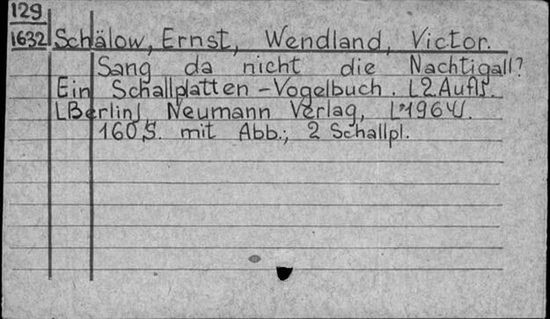 129
1632 Schälow, Ernst, Wendland, Victor.
Sang da nicht die Nachtigall?
Ein Schallplatten-Vogelbuch. [2. Aufl.
[Berlin], Neumann Verlag, [*1964].
160 S. mit Abb.; 2 Schallpl.